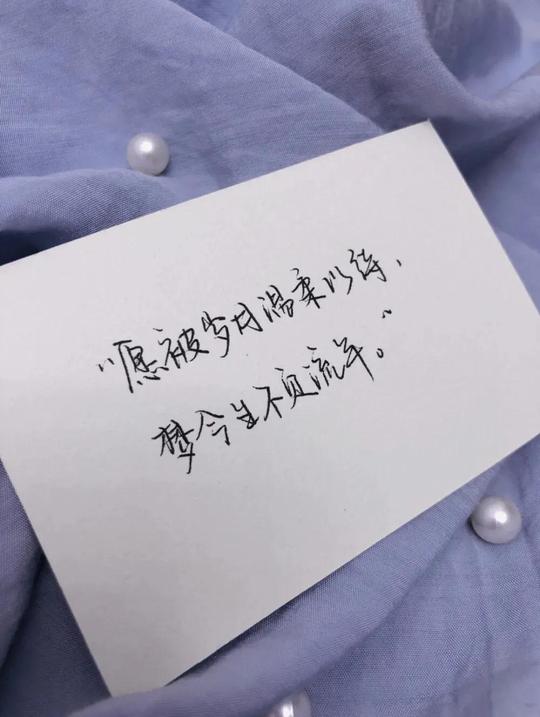 “愿被岁月温柔以待，
梦今生不负流年。”